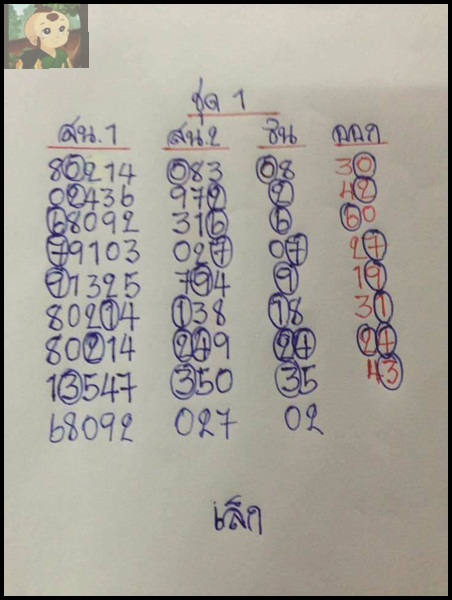 ชุด 1
สน.1 สน.2 ชน ออก
80214 083 08 30
02436 972 2 42
68092 316 6 60
79103 027 07 27
91325 794 9 19
80214 138 18 31
80214 249 24 24
13547 350 35 43
68092 027 02
เล็ก